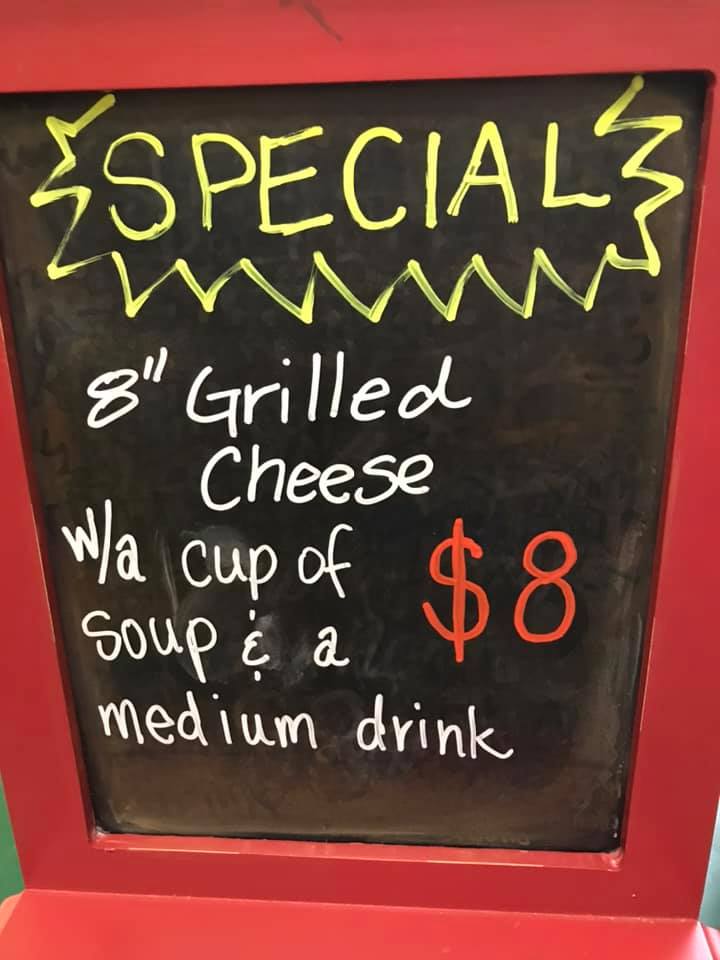 SPECIAL
8" Grilled
Cheese
w/a cup of
soup & a
$8
medium drink